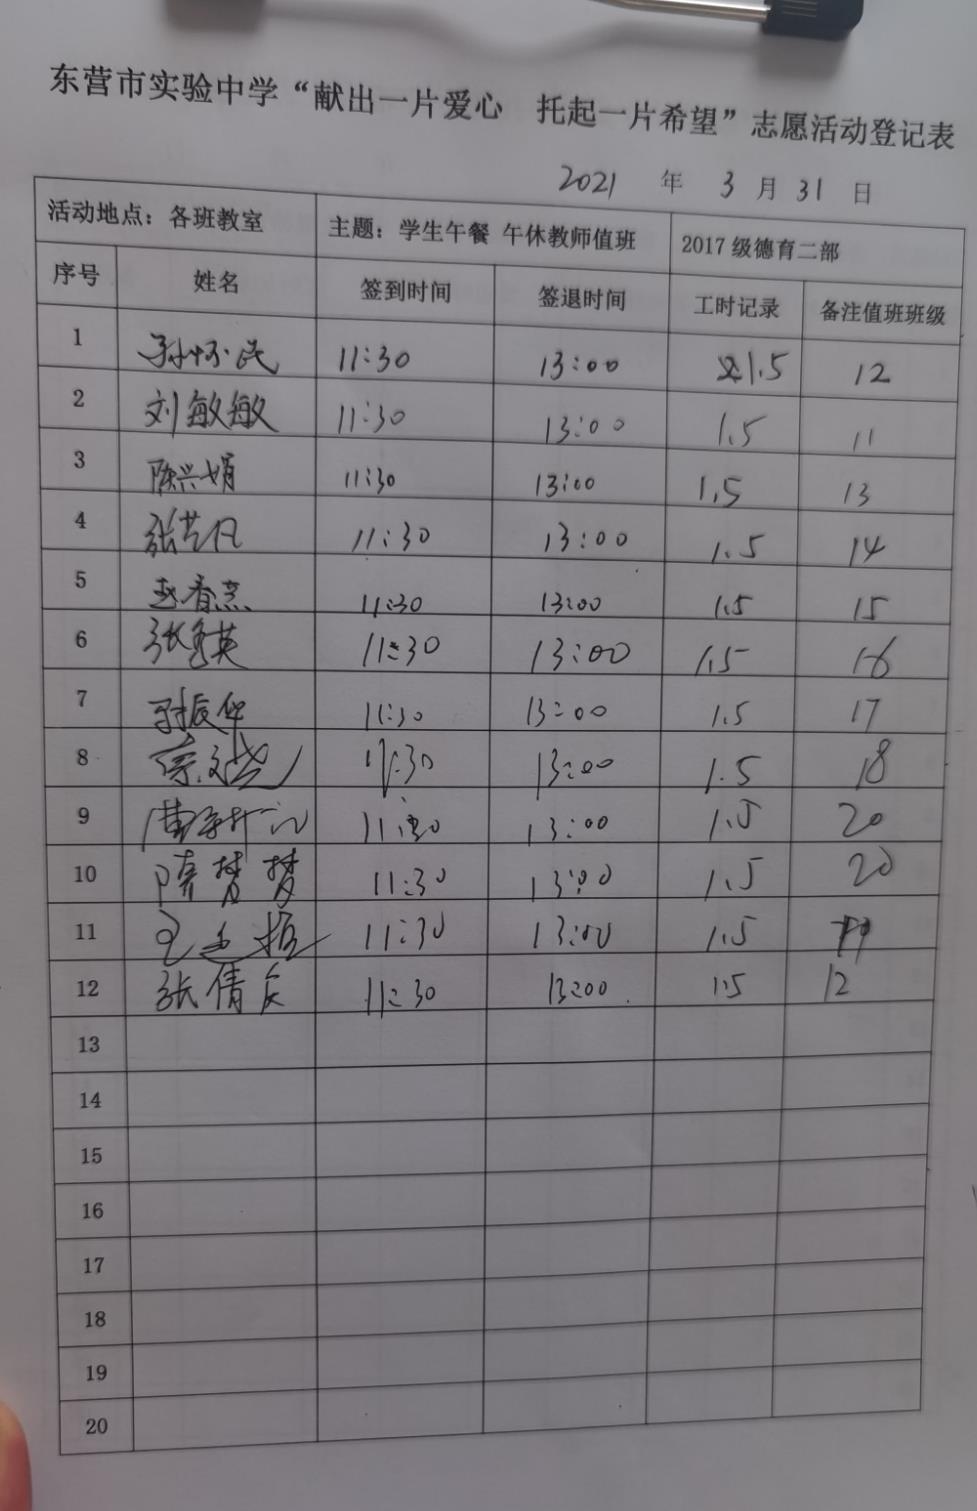 东营市实验中学“献出一片爱心 托起一片希望”志愿活动登记表
2021 年 3 月 31 日
活动地点：各班教室 主题：学生午餐 午休教师值班 2017 级德育二部
序号 姓名 签到时间 签退时间 工时记录 备注值班班级
1 孙怀民 11:30 13:00 1.5 12
2 刘敏敏 11:30 13:00 1.5 11
3 陈兴娟 11:30 13:00 1.5 13
4 张 11:30 13:00 1.5 14
5 赵春燕 11:30 13:00 1.5 15
6 张秀英 11:30 13:00 1.5 16
7 孙振华 11:30 13:00 1.5 17
8 11:30 13:00 1.5 18
9 11:30 13:00 1.5 20
10 隋梦梦 11:30 13:00 1.5 20
11 11:30 13:00 1.5
12 张倩 11:30 13:00 1.5 12
13
14
15
16
17
18
19
20